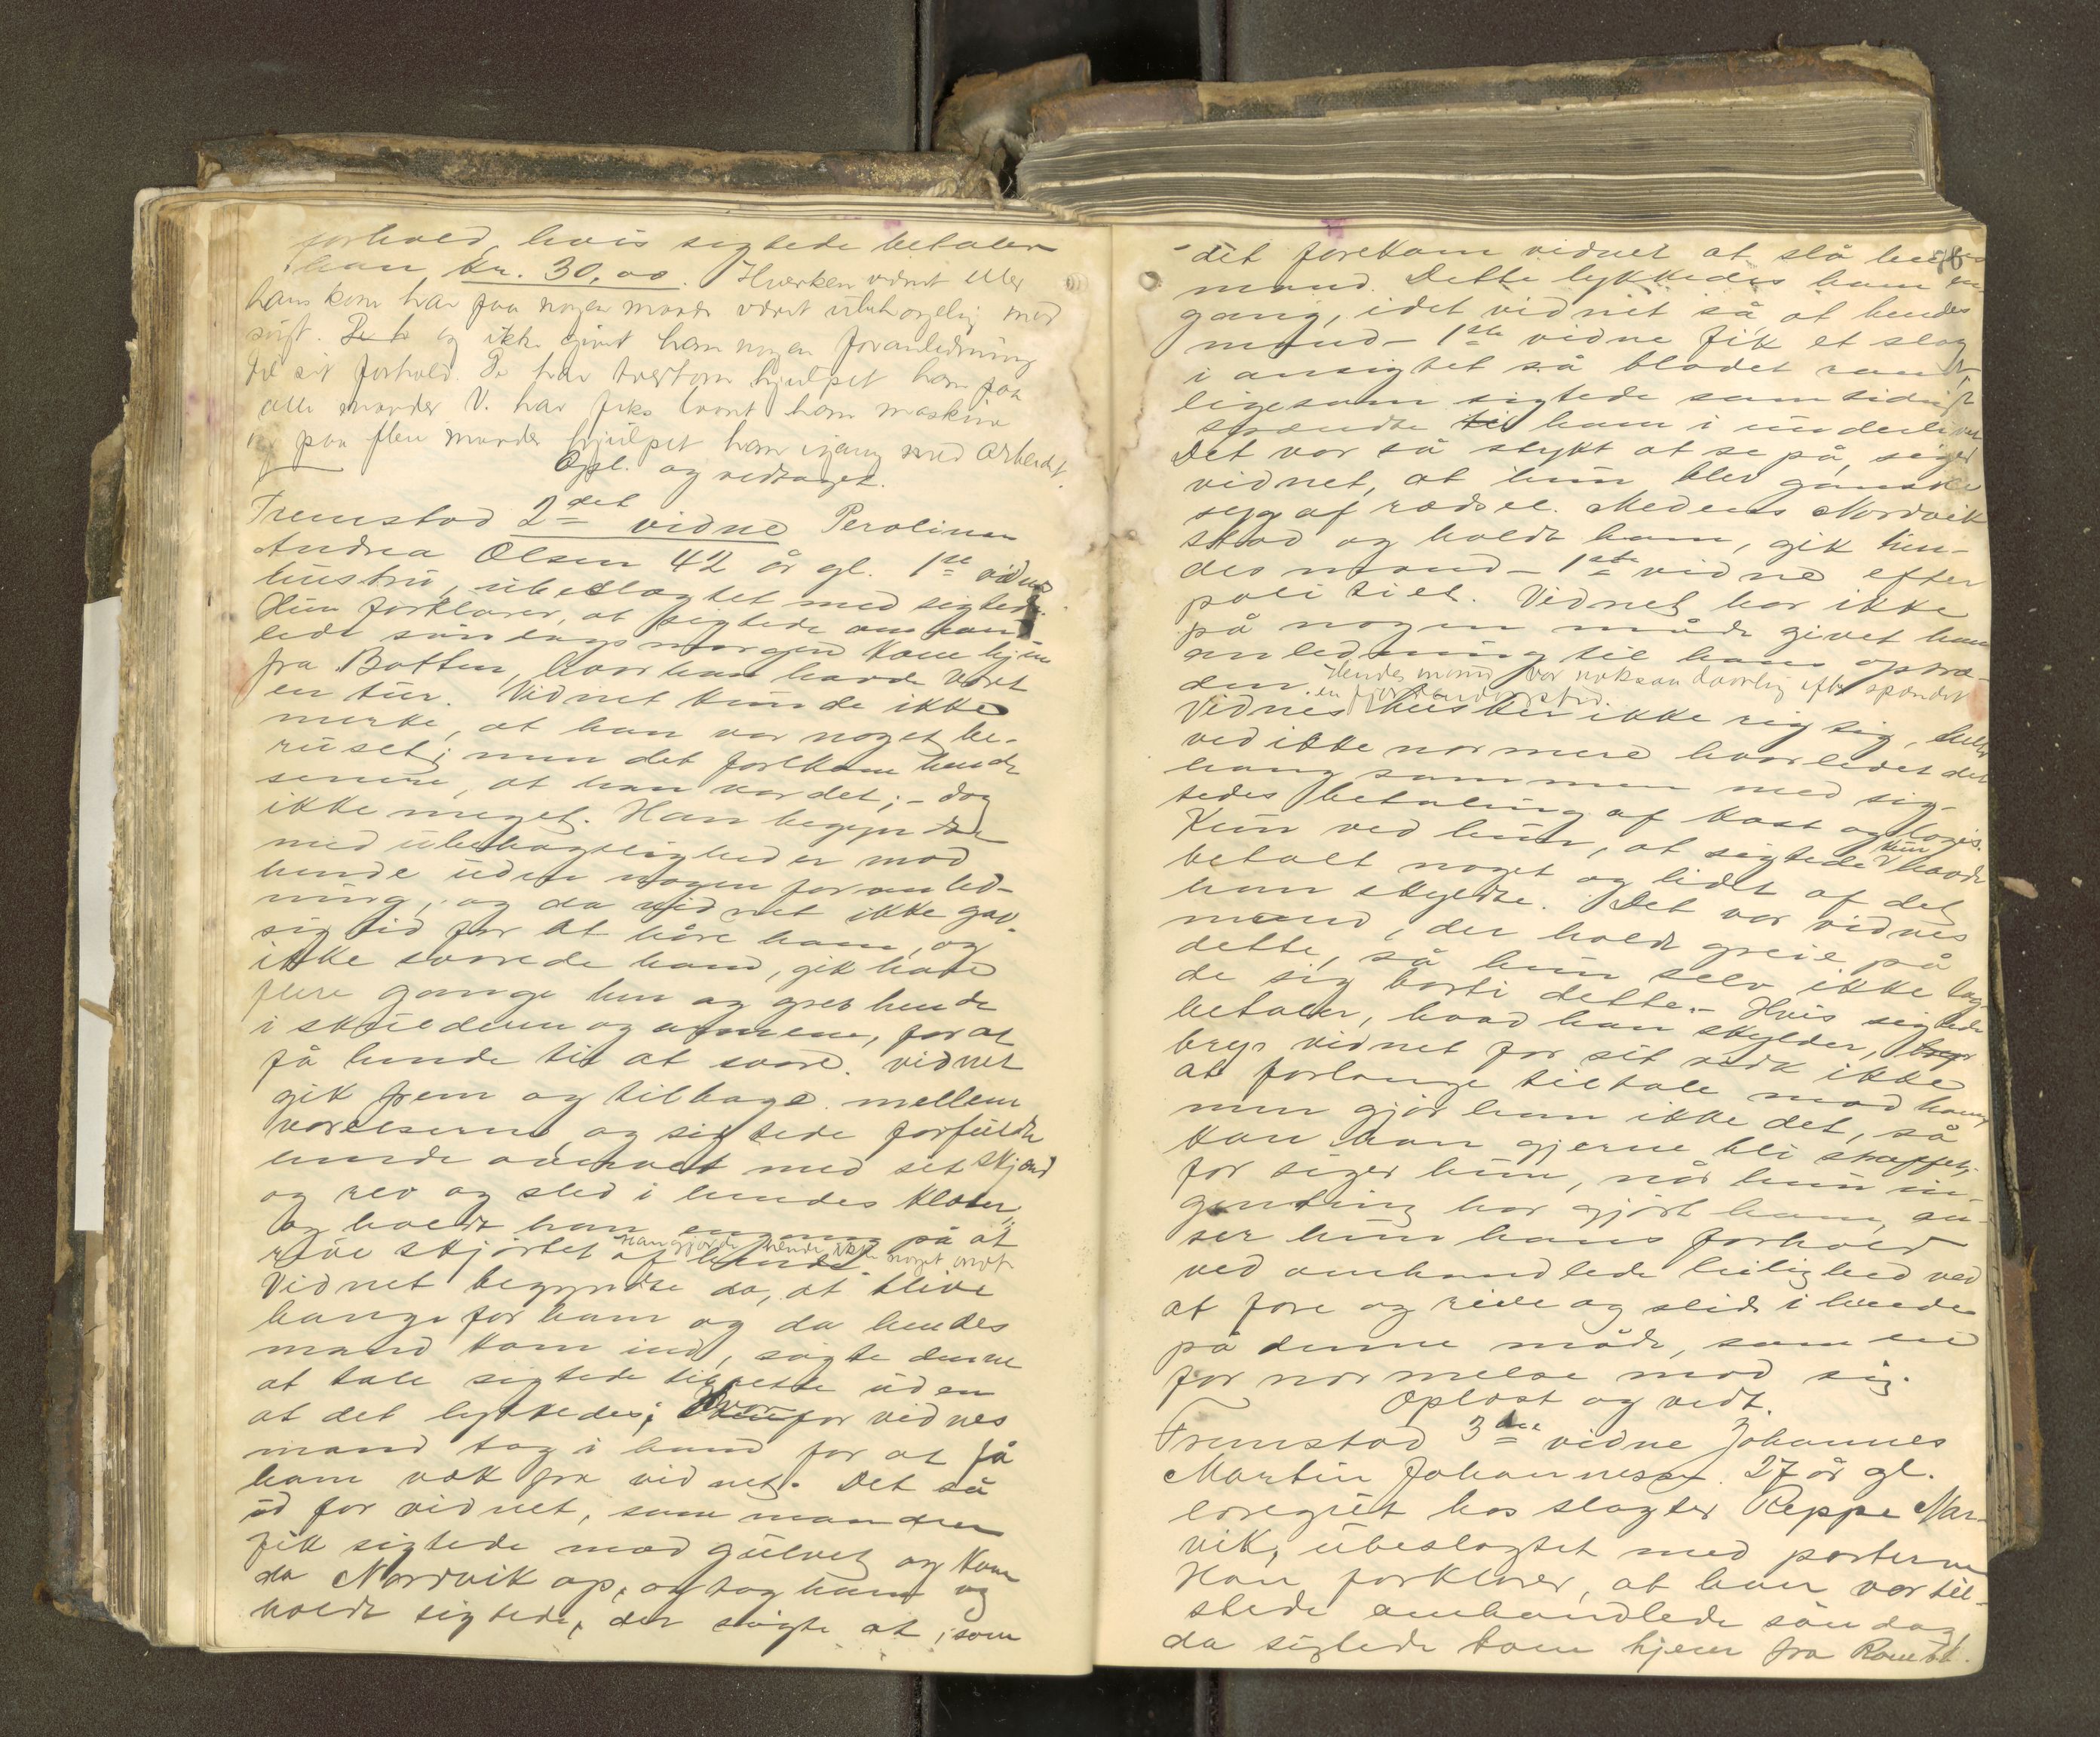 forhold, hvis sigtede betaler
ham kr. 30,00. Hverken vidnet eller
hans kone har paa nogen maade været ubehagelig mod
sigt. De h og ikke givet ham nogen foranledning
til sit forhold. De har tvertom hjulpet ham paa
alle maader V. har f.eks laant ham maskine
og paa flere maader hjulpet ham igang med arbeidet.
Opl. og vedtaget.
Fremstod 2det vidne Peroline
Andrea Olsen 42 år gl. 1ste vidnes
hustru, ubeslægtet med sigtede.
Hun forklarer, at sigtede omhand
lede søndagsmorgen kom hjem
fra Botten, hvor han havde været
en tur. Vidnet kunde ikke
merke, at han var noget be-
ruset; men det forekom hende
senere, at han var det; - dog
ikke meget. Han begyndte
med ubehageligheder mod
hende uden nogen foranled-
ning, og da vidnet ikke gav
sig tid for at høre ham, og
ikke svarede ham, gik han
flere gange hen og greb hende
i skulderen og armene, for at
få hende til at svare. Vidnet
gik frem og tilbage mellem
værelserne, og sigtede forfulgte
hende overalt med sit skjænd
og rev og sled i hendes klæder,
og holdt han engang på at
rive skjørtet af hende. Han gjorde hende ikke noget ondt
Vidnet begyndte da, at blive
bange for ham og da hendes
mand kom ind, søgte denne
at tale sigtede tilrette uden
at det lykkedes; Hvorfor vidnes
mand tog i ham for at få
ham væk fra vidnet. Det så
ud for vidnet, som manden
fik sigtede mod gulvet og kom
da Nordvik op, og tog ham og
holdt sigtede, der søgte at, som
det forekom vidnet at slå hendes
mand. Dette lykkedes ham en
gang, idet vidnet så at hendes
mand - 1ste vidne fik et slag
i ansigtet så blodet randt,
ligesom sigtede samtidigt
spændte til ham i underlivet
Det var så stykt at se på, siger
vidnet, at hun blev ganske
syg af rædsel. Medens Nordvik
stod og holdt ham, gik hen-
des mand - 1ste vidne efter
politiet. Vidnet har ikke
på nogen måde givet ham
anledning til hans optræ-
den. Hendes mand var noksaa daarlig efter spændet
en fjorten dages tid.
Vidnes husker ikke rigtig, eller
ved ikke nærmere hvorledes det
hang sammen med sig-
tedes betaling af kost og logis.
Kun ved hun, at sigtede kun havde
betalt noget og lidt af det
han skyldte. Det var vidnes
mand, der holdt greie på
dette, så hun selv ikke lag-
de sig borti dette. - Hvis sigtede
betaler, hvad han skylder, bryr
bryr vidnet for sit vedk ikke
at forlange tiltale mod ham,
men gjør han ikke det, så
kan han gjerne bli straffet;
for siger hun, når hun in-
genting har gjort ham, an-
ser hun hans forhold
ved omhandlede leilighed ved
at fare og rive og slide i hende
på denne måde, som en
fornærmelse mod sig.
Oplæst og vedt.
Fremstod 3die vidne Johannes
Martin Johannesen 27 år gl.
hos slagter Reppe Nar-
vik, ubeslægtet med parterne
Han forklarer, at han var til-
stede omhandlede søndag
da sigtede kom hjem fra Rombk.